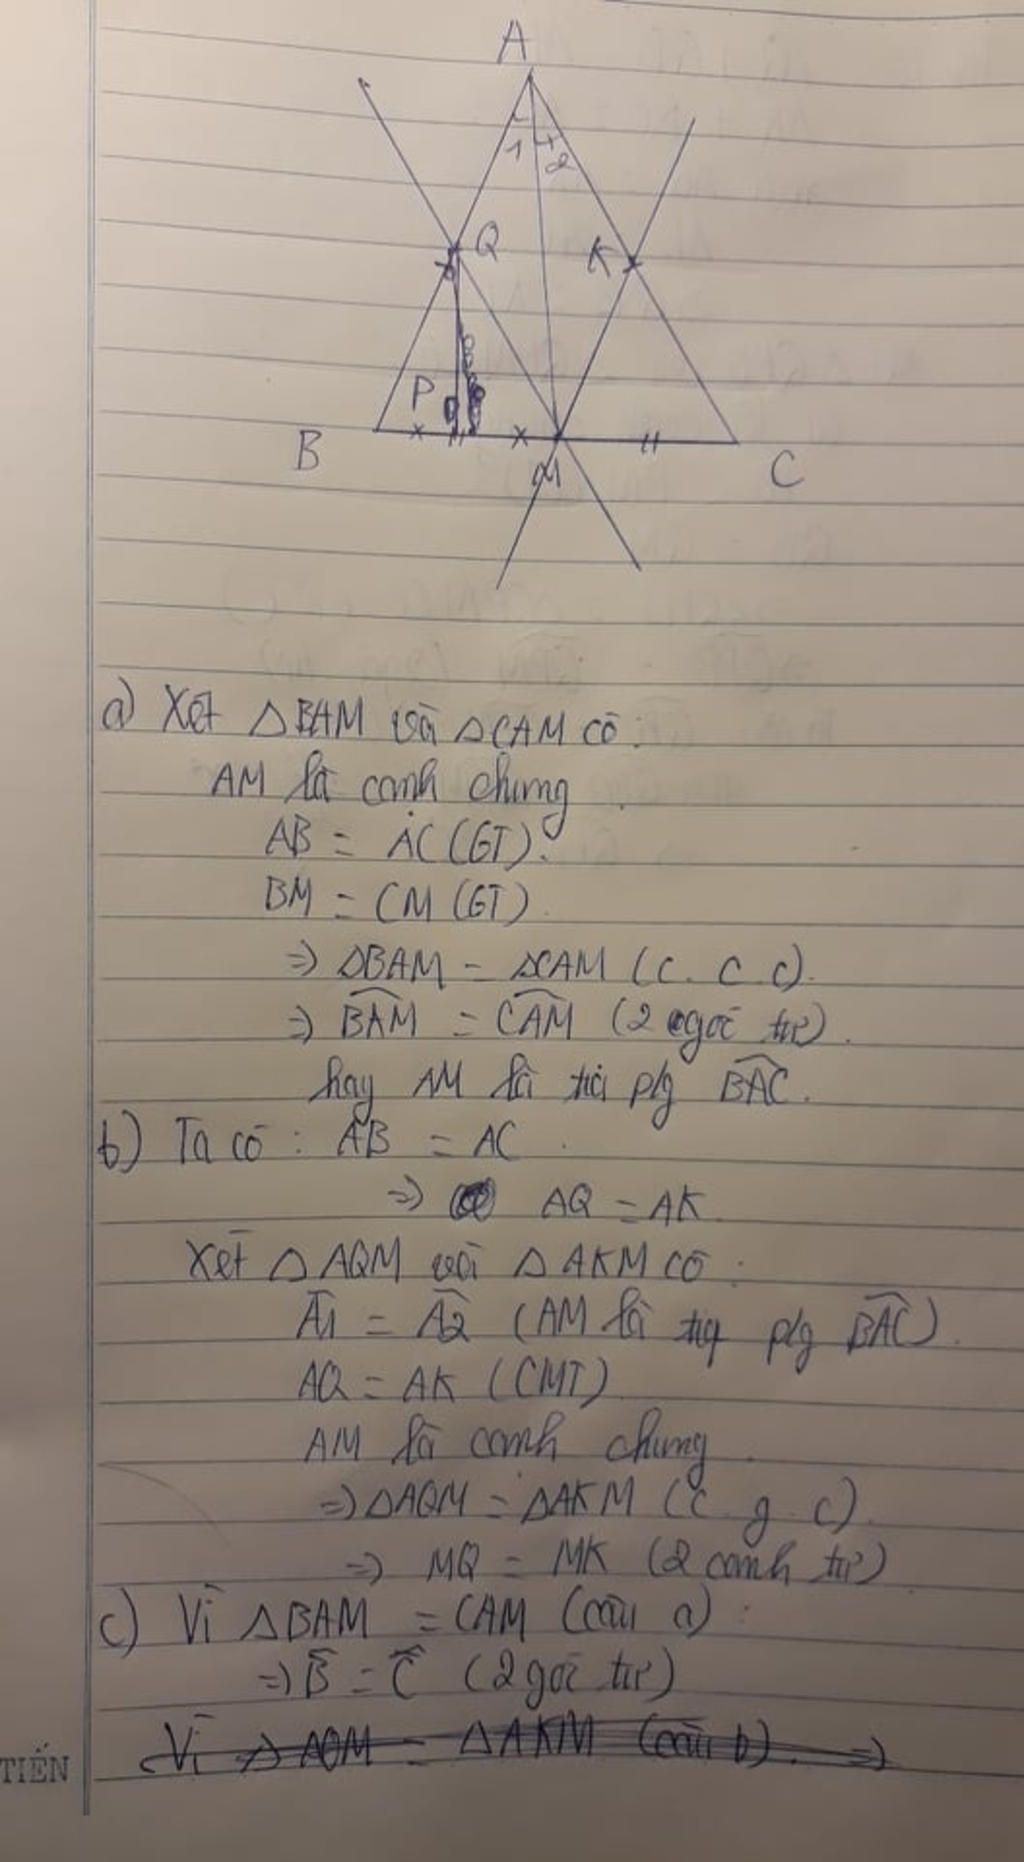 A
1 2
Q K
P
B M C
a) Xét △BAM và △CAM có:
AM là cạnh chung
AB = AC (GT).
BM = CM (GT).
=> △BAM = △CAM (c. c. c).
=> BAM = CAM (2 góc tư).
hay AM là tia p/g BAC.
b) Ta có: AB = AC.
=> AQ = AK
Xét △AQM và △AKM có:
A1 = A2 (AM là tia p/g BAC).
AQ = AK (CMT)
AM là cạnh chung.
=> △AQM = △AKM (c. g. c).
=> MQ = MK (2 cạnh tư)
c) Vì △BAM = CAM (câu a):
=> B = C (2 góc tư)
Vì △AQM = △AKM (câu b). =>
TIẾN